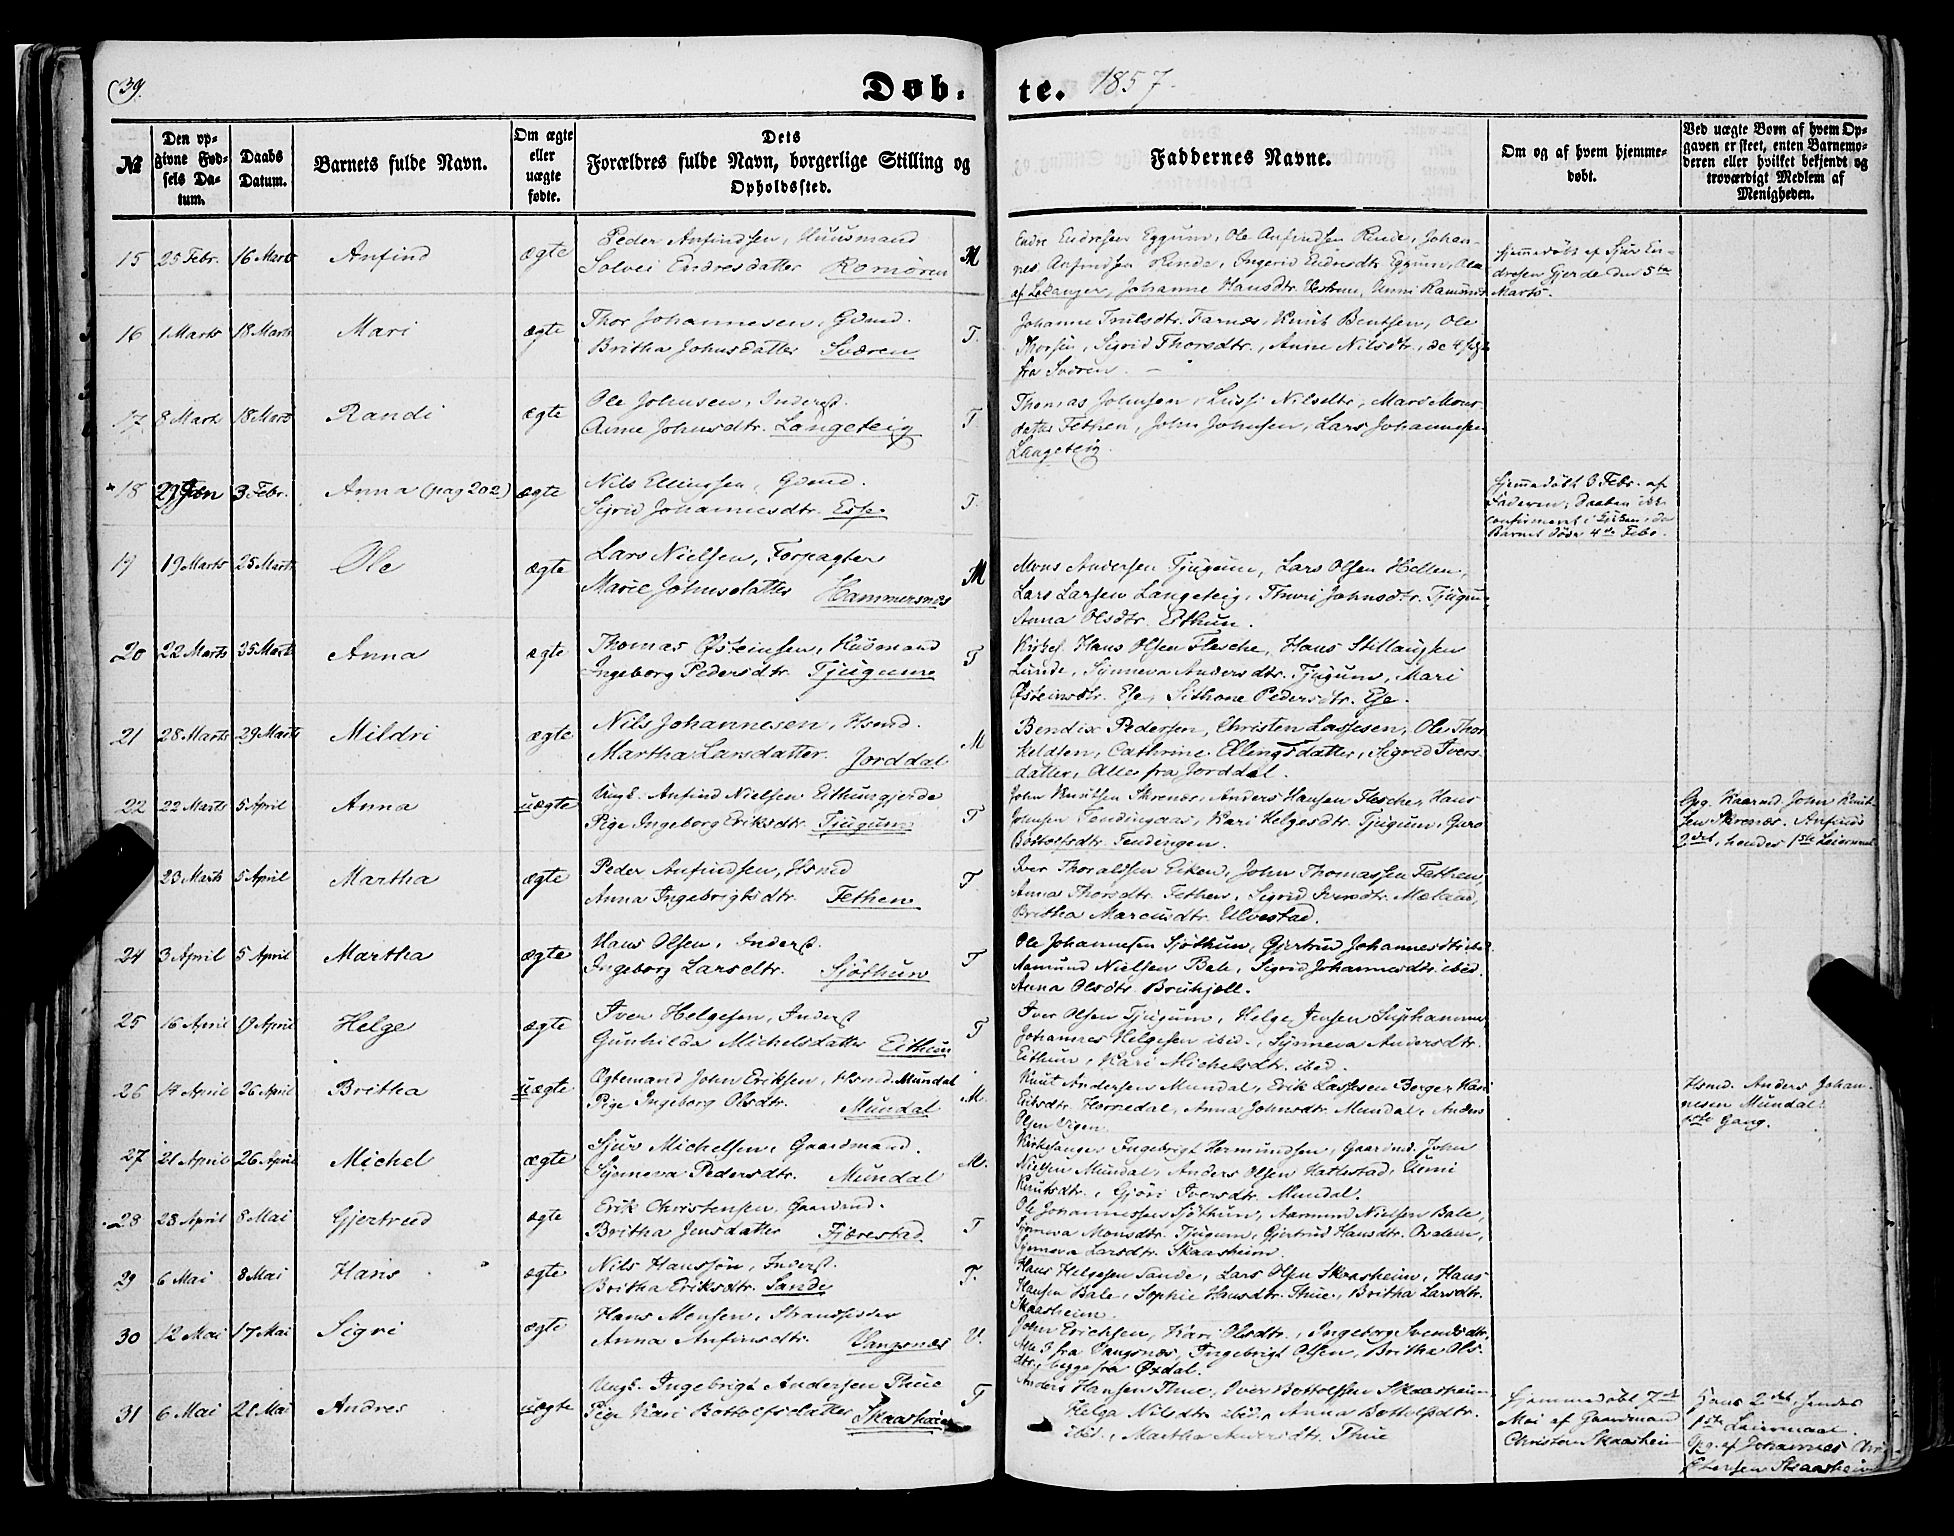 39.
Døb-
te. 1857.
№
Den op-
givne Fød-
sels Da-
tum.
Daabs
Datum.
Barnets fulde Navn.
Om ægte
eller
uægte
fødte.
Dets
Forældres fulde Navn, borgerlige Stilling og
Opholdssted.
Faddernes Navne.
Om og af hvem hjemme-
døbt.
Ved uægte Børn af hvem Op-
gaven er skeet, enten Barnemo-
deren eller hvilket bekjendt og
troværdigt Medlem af
Menigheden.
15 25 Febr. 16 Marts Anfind ægte
Peder Anfindsen, Huusmand
Solvei Endresdatter Romøren M
Endre Endresen Eggum, Ole Anfindsen Rinde, Johan-
nes Anfindsen Rinde, Ingerid Endresdtr Eggum,
af Lekanger, Johanne Hansdtr.
Hjemmedøbt af Sjur En-
dresen Gjerde den 5te
Marts.
16 1 Marts 18 Marts Mari ægte
Thor Johannesen, Gdmd.
Britha Johnsdatter Sværen T.
Johanne Trulsdtr. Farnæs, Knut Bentsen, Ole
Thorsen, Sigrid Thorsdtr., Anne Nilsdtr., de 4
fra Sværen.
17 8 Marts 18 Marts Randi ægte
Ole Johnsen, Inderst.
Anne Johnsdtr. Langeteig T
Thomas Johnsen, Nilsdtr,
datter Fethen, John Johnsen, Lars Johannesen
Langeteig.
18 29 Jan 3 Febr. Anna (pag 202) ægte
Nils Ellingsen, Gdmd.
Sigrid Johannesdtr. Ese. T.
Hjemmedøbt 3 Febr. af
Faderen; Daaben ikke
confirmeret i Kirken, da
Barnet døde 4de Febr.
19 19 Marts 25 Marts Ole ægte
Lars Nielsen, Forpagter
Marie Johnsdatter Hammersnæs M
Mons Andersen Tjugum, Lars Olsen Hellen,
Lars Larsen Langeteig, Thuri Johnsdtr. Tjugum,
Anna Olsdtr. Eithun.
20 22 Marts 25 Marts Anna ægte
Thomas Østeinsen, Husmand
Ingeborg Pedersdtr. Tjugum T
Kirkes. Hans Olsen Flesche, Hans Stillaugsen
Lunde, Synneva Andersdtr. Tjugum, Mari
Østeinsdtr. Ese, Pedersdtr. Ese.
21 28 Marts 29 Marts Mildri ægte
Nils Johannesen, Hsmd.
Martha Larsdatter. Jorddal M
Bendix Pedersen, Christen Lassesen, Ole Thor
keldsen, Cathrine Ellingsdatter, Sigrid Ivers-
datter, Alle fra Jorddal.
22 22 Marts 5 April Anna uægte
Ungk. Anfind Nielsen Eithungjerde
Pige Ingeborg Eriksdtr. Tjugum T
John Knutsen Skrenæs, Anders Hansen Flesche, Hans
Johnsen Fendingaas, Kari Helgesdtr. Tjugum, Guro
Bottolfsdtr. Fendingen.
Opg. Kaarmd. John Knut-
sen Skrenæs. Anfinds
2det, hendes 1ste Leiermaal
23 Marts 5 April Martha ægte
Peder Anfindsen, Hsmd
Anna Ingebrigtsdtr. Fethen T
Iver Thoraldsen Eiken, John Thomassen Fethen,
Anna Thorsdtr. Fethen, Sigrid Iversdtr. Mæland,
Britha Marcusdtr. Ulvestad.
24 3 April 5 April Martha ægte
Hans Olsen, Inderst.
Ingeborg Larsdtr. Sjøthun T
Ole Johannesen Sjøthun, Gjertrud Johannesdtr ibid.
Aamund Nielsen Bale, Sigrid Johannesdtr. ibid.
Anna Olsdtr. Bruhjell.
25 16 April 19 April Helge ægte
Iver Helgesen, Inderst
Gunhilda Michelsdatter Eithun T
Iver Olsen Tjugum, Helge Jensen Suphammer
Johannes Helgesen ibid., Synneva Andersdtr.
Eithun, Kari Michelsdtr. ibid.
26 14 April 26 April Britha uægte
Ægtemand John Eriksen, Hsmd. Mundal
Pige Ingeborg Olsdtr. Mundal M.
Knut Andersen Mundal, Erik Lassesen Berge, Kari
Eriksdtr. Horredal, Anna Johnsdtr. Mundal, Anders
Olsen Vigen.
Hsmd. Anders Johan-
nesen Mundal.
1ste Gang.
27 21 April 26 April Michel ægte
Sjur Michelsen, Gaardmand.
Synneva Pedersdtr. Mundal M.
Kirkesanger Ingebrigt Hermundsen, Gaardmd. John
Nielsen Mundal, Anders Olsen Hatlestad, Unni
Knutsdtr., Gjøri Iversdtr. Mundal.
28 23 April 8 Mai Gjertrud ægte
Erik Christensen, Gaardmd.
Britha Jensdatter Fjærestad T
Ole Johannessen Sjøthun, Aamund Nielsen Bale,
Synneva Monsdtr. Tjugum, Gjertrud Hansdtr. Qvalem,
Synneva Larsdtr. Skaasheim.
29 6 Mai 8 Mai Hans ægte
Nils Hanssøn, Inderst.
Britha Eriksdtr. Sande T.
Hans Helgesen Sande, Lars Olsen Skaasheim, Hans
Hansen Bale, Sophie Hansdtr. Thue, Britha Larsdtr.
Skaasheim.
30 12 Mai 17 Mai Sigri ægte
Hans Monsen, Strandsidder
Anna Anfinsdtr. Vangsnæs V.
John Erichsen, Kari Olsdtr., Ingeborg Svendsdtr,
Alle 3 fra Vangsnæs, Ingebrigt Olsen, Britha Ols-
dtr, begge fra Øxdal.
31 6 Mai 21 Mai Andres uægte
Ungk. Ingebrigt Andersen Thue
Pige Kari Bottolfsdatter Skaasheim T
Anders Hansen Thue, Iver Bottolfsen Skaasheim
Helga Nilsdtr ibid., Anna Bottolfsdtr.
ibid., Martha Andersdtr. Thue
Hjemmedøbt 7de
Mai af Gaardmand
Christen Skaasheim
Hans 2det, hendes
1ste Leiermaal.
Opg. af Johannes Chri-
stensen Skaasheim